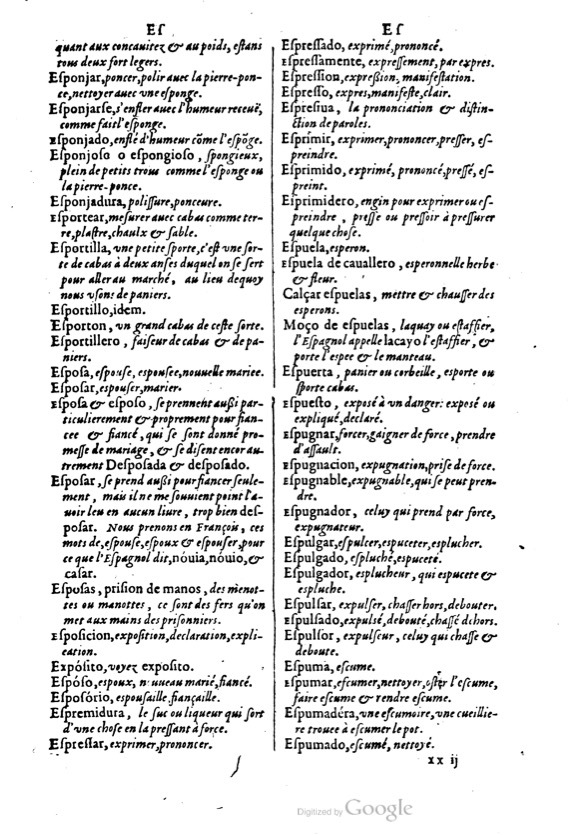 Eſ
quant aux concauitez & au poids, eſtans
tous deux fort legers.
Eſponjar, poncer, polir auec la pierre-pon-
ce, nettoyer auec vne eſponge.
Eſponjarſe, s'enfler auec l'humeur receuë,
comme fait l'eſponge.
Eſponjado, enflé d'humeur cōme l'eſpōge.
Eſponjoſo o eſpongioſo, ſpongieux,
plein de petits trous comme l'eſponge ou
la pierre-ponce.
Eſponjadura, poliſſure, ponceure.
Eſportear, meſurer auec cabas comme ter-
re, plaſtre, chaulx & ſable.
Eſportilla, vne petite ſporte, c'eſt vne ſor-
te de cabas à deux anſes duquel on ſe ſert
pour aller au marché, au lieu dequoy
nous vſons de paniers.
Eſportillo, idem.
Eſporton, vn grand cabas de ceſte ſorte.
Eſportillero, faiſeur de cabas & de pa-
niers.
Eſpoſa, eſpouſe, eſpouſee, nouuelle mariee.
Eſpoſar, eſpouſer, marier.
Eſpoſa & eſpoſo, ſe prennent auſſi par-
ticulierement & proprement pour fian-
cee & fiancé, qui ſe ſont donné pro-
meſſe de mariage, & ſe diſent encor au-
trement Deſpoſada & deſpoſado.
Eſpoſar, ſe prend auſſi pour fiancer ſeule-
ment, mais il ne me ſouuient point l'a-
uoir leu en aucun liure, trop bien deſ-
poſar. Nous prenons en François, ces
mots de, eſpouſe, eſpoux & eſpouſer, pour
ce que l'Eſpagnol dit, nóuia, nóuio, &
caſar.
Eſpoſas, priſion de manos, des menot-
tes ou manottes, ce ſont des fers qu'on
met aux mains des priſonniers.
Eſpoſicion, expoſition, declaration, expli-
cation.
Expóſito, voyez expoſito.
Eſpóſo, eſpoux, nouueau marié, fiancé.
Eſpoſório, eſpouſaille, fiançaille.
Eſpremidura, le ſuc ou liqueur qui ſort
d'vne choſe en la preſſant à force.
Eſpreſſar, exprimer, prononcer.
Eſ
Eſpreſſado, exprimé, prononcé.
Eſpreſſamente, expreſſement, par expres.
Eſpreſſion, expreſſion, manifeſtation.
Eſpreſſo, expres, manifeſte, clair.
Eſpreſiua, la prononciation & diſtin-
ction de paroles.
Eſprimir, exprimer, prononcer, preſſer, eſ-
preindre.
Eſprimido, exprimé, prononcé, preſſé, eſ-
preint.
Eſprimidero, engin pour exprimer ou eſ-
preindre, preſſe ou preſſoir à preſſurer
quelque choſe.
Eſpuela, eſperon.
Eſpuela de cauallero, eſperonnelle herbe
& fleur.
Calçar eſpuelas, mettre & chauſſer des
esperons.
Moço de eſpuelas, laquay ou eſtaffier,
l'Eſpagnol appelle lacayo l'eſtaffier, &
porte l'eſpee & le manteau.
Eſpuerta, panier ou corbeille, eſporte ou
ſporte cabas.
Eſpueſto, expoſé à vn danger: expoſé ou
expliqué, declaré.
Eſpugnar, forcer, gaigner de force, prendre
d'aſſault.
Eſpugnacion, expugnation, priſe de force.
Eſpugnable, expugnable, qui ſe peut pren-
dre.
Eſpugnador, celuy qui prend par force,
expugnateur.
Eſpulgar, eſpulcer, eſpuceter, eſplucher.
Eſpulgado, eſpluché, eſpuceté.
Eſpulgador, eſplucheur, qui eſpucete &
eſpluche.
Eſpulſar, expulſer, chaſſer hors, debouter.
Eſpulſado, expulsé, debouté, chaſſé dehors.
Eſpulſor, expulſeur, celuy qui chaſſe &
deboute.
Eſpuma, eſcume.
Eſpumar, eſcumer, nettoyer, oſter l'eſcume,
faire eſcume & rendre eſcume.
Eſpumadéra, vne eſcumoire, vne cueillie-
re trouee à eſcumer le pot.
Eſpumado, eſcumé, nettoyé.
xx ij
Digitized by Google